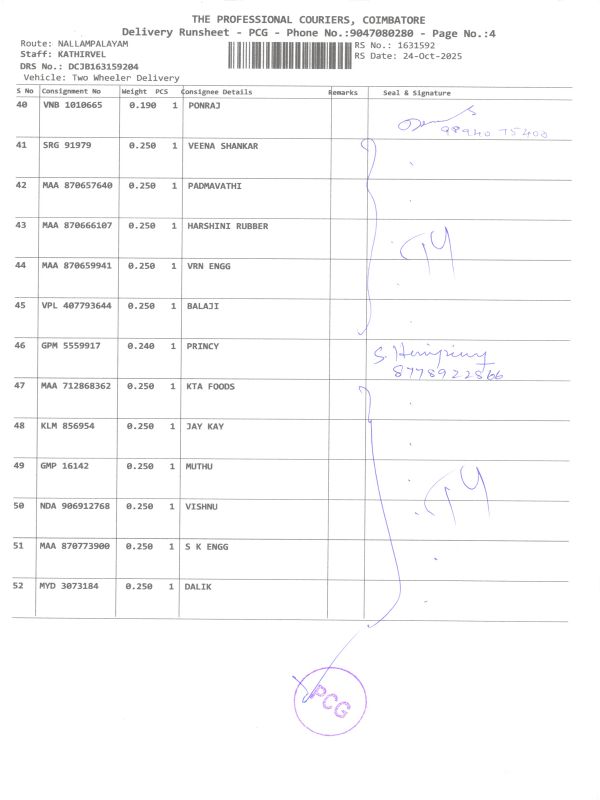 THE PROFESSIONAL COURIERS, COIMBATORE
Delivery Runsheet - PCG - Phone No.:9047080280 - Page No.:4
Route: NALLAMPALAYAM
Staff: KATHIRVEL
DRS No.: DCJB163159204
Vehicle: Two Wheeler Delivery
RS No.: 1631592
RS Date: 24-Oct-2025
S No Consignment No Weight PCS Consignee Details Remarks Seal & Signature
40 VNB 1010665 0.190 1 PONRAJ
98940 75400
41 SRG 91979 0.250 1 VEENA SHANKAR
42 MAA 870657640 0.250 1 PADMAVATHI
43 MAA 870666107 0.250 1 HARSHINI RUBBER
44 MAA 870659941 0.250 1 VRN ENGG
45 VPL 407793644 0.250 1 BALAJI
46 GPM 5559917 0.240 1 PRINCY
8778922866
47 MAA 712868362 0.250 1 KTA FOODS
48 KLM 856954 0.250 1 JAY KAY
49 GMP 16142 0.250 1 MUTHU
50 NDA 906912768 0.250 1 VISHNU
51 MAA 870773900 0.250 1 S K ENGG
52 MYD 3073184 0.250 1 DALIK
PCG